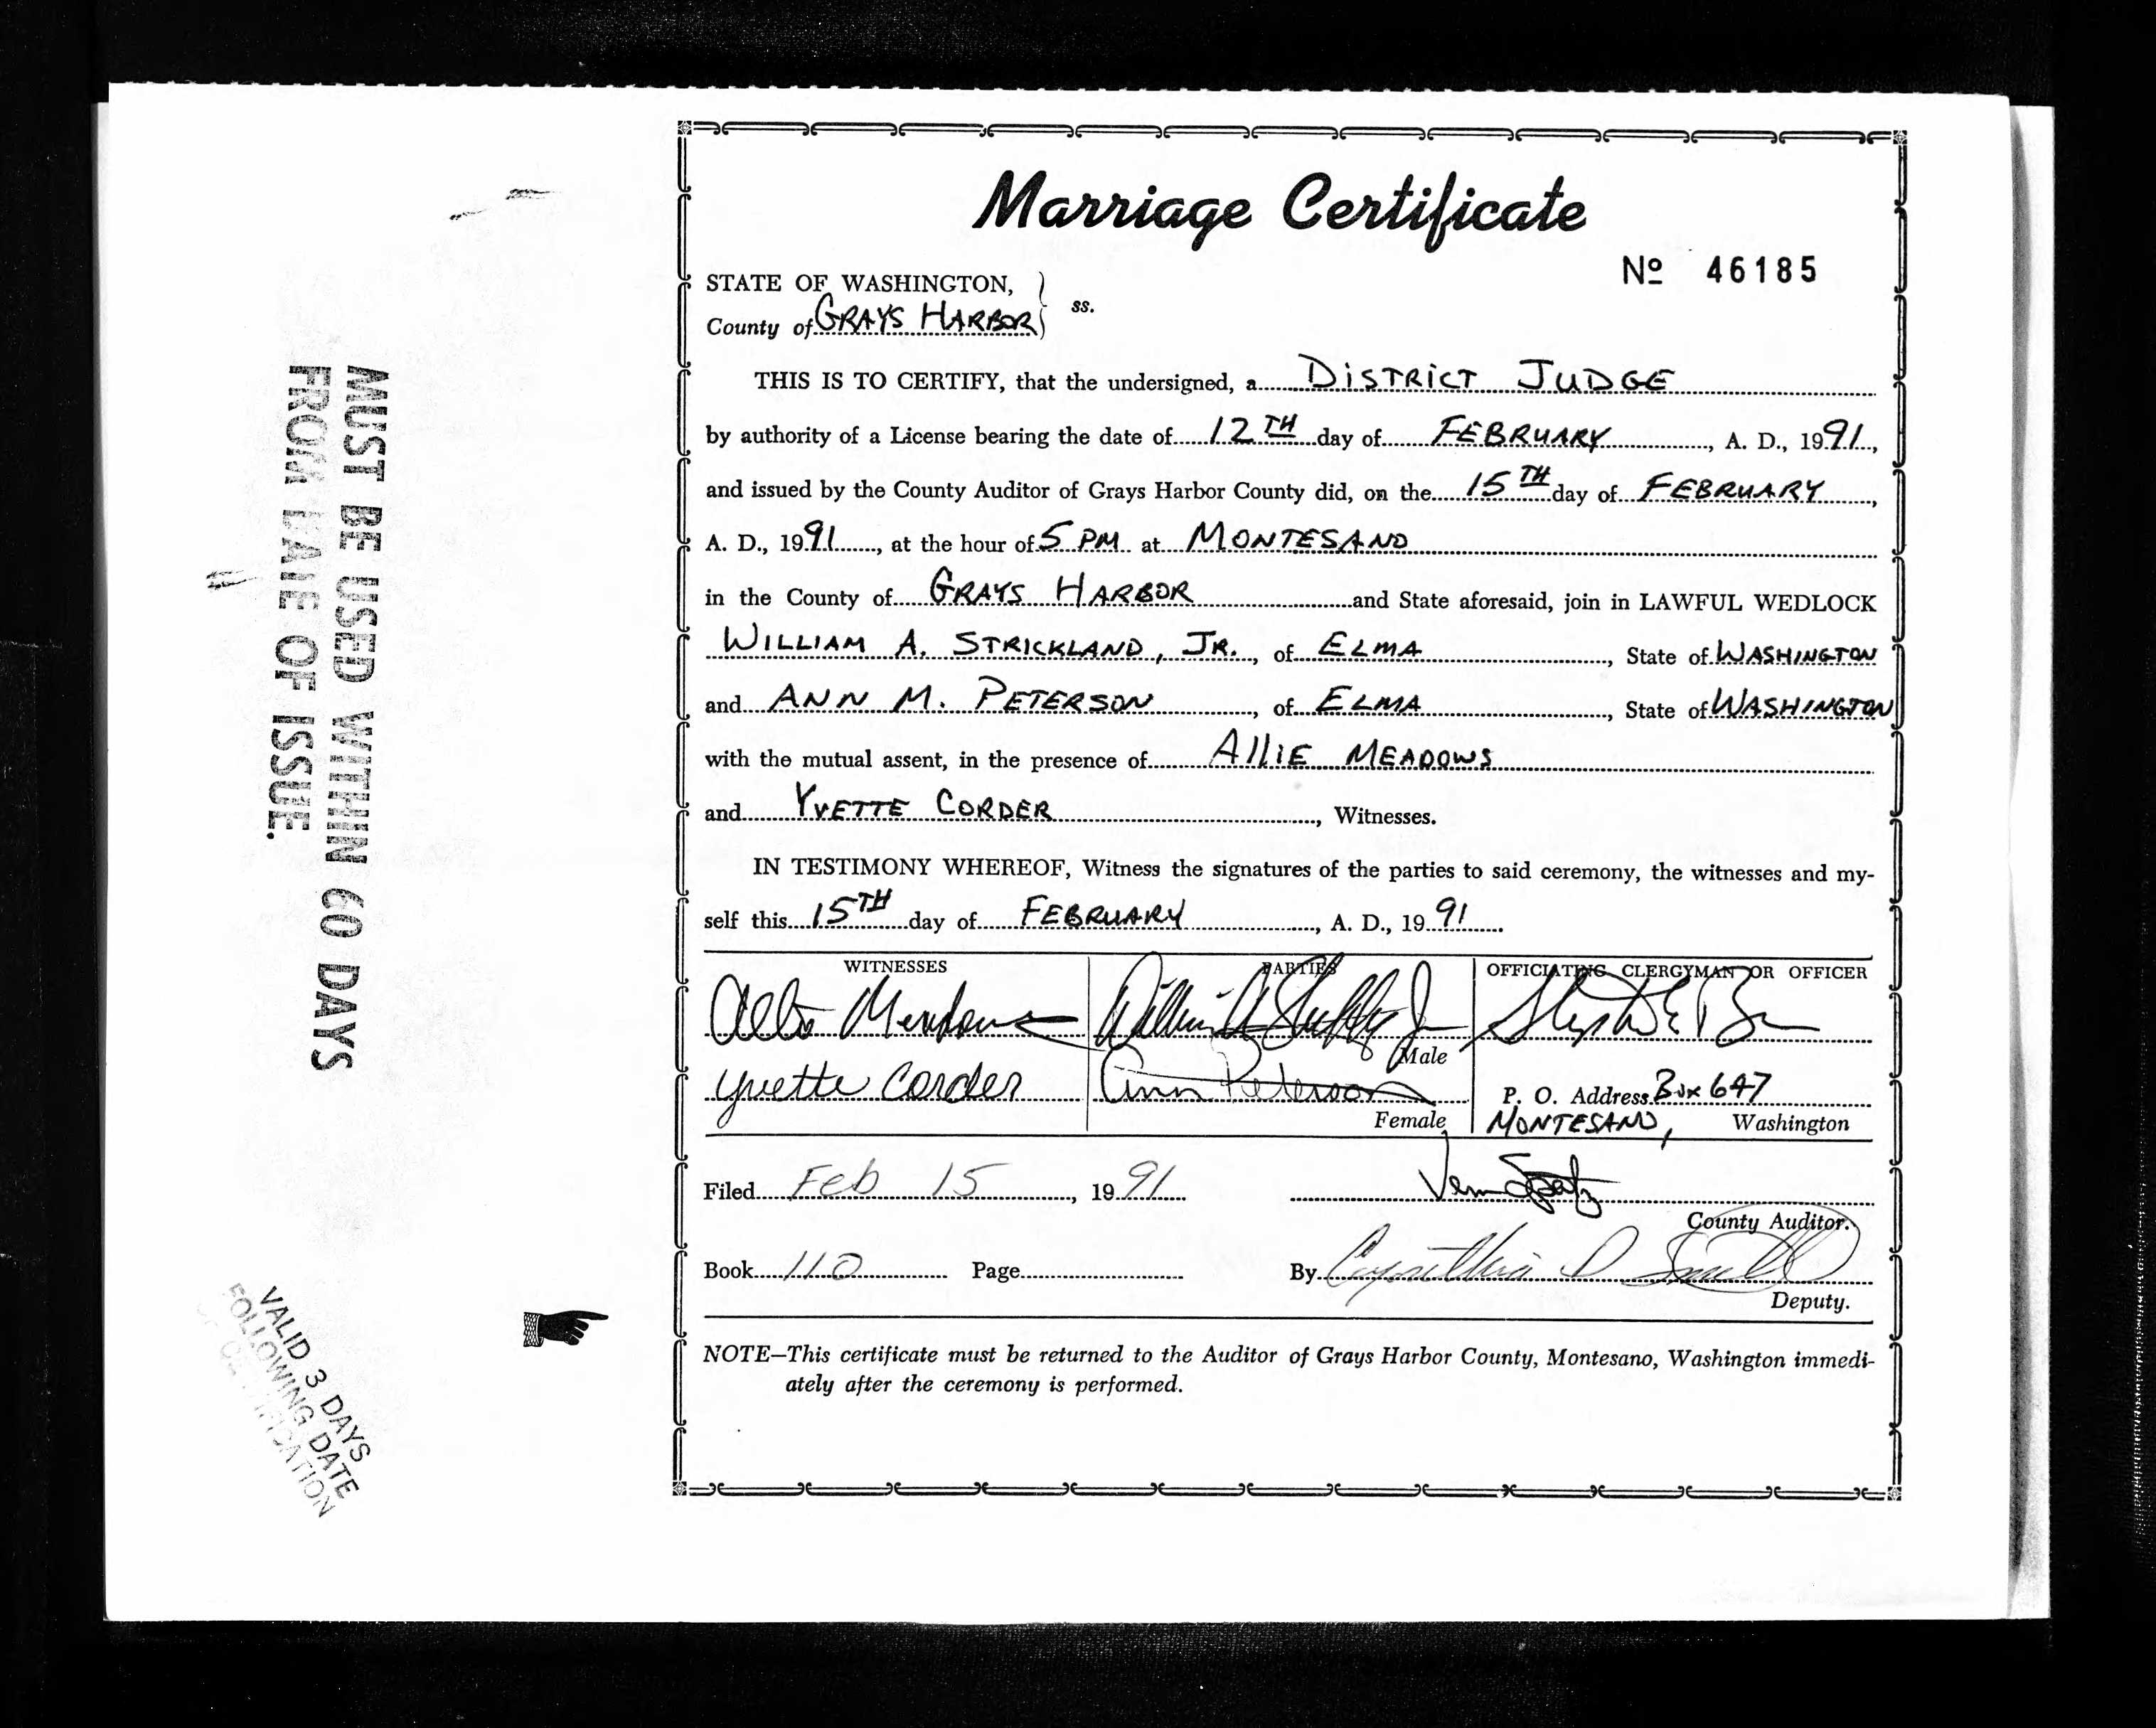 Marriage Certificate
Nº 46185
STATE OF WASHINGTON,
County of GRAYS HARBOR } ss.
THIS IS TO CERTIFY, that the undersigned, a DISTRICT JUDGE
by authority of a License bearing the date of 12TH day of FEBRUARY, A. D., 1991,
and issued by the County Auditor of Grays Harbor County did, on the 15TH day of FEBRUARY,
A. D., 1991, at the hour of 5 PM at MONTESANO
in the County of GRAYS HARBOR and State aforesaid, join in LAWFUL WEDLOCK
WILLIAM A. STRICKLAND, JR., of ELMA, State of WASHINGTON
and ANN M. PETERSON, of ELMA, State of WASHINGTON
with the mutual assent, in the presence of AlliE MEADOWS
and YVETTE CORDER, Witnesses.
IN TESTIMONY WHEREOF, Witness the signatures of the parties to said ceremony, the witnesses and my-
self this 15TH day of FEBRUARY, A. D., 1991
WITNESSES PARTIES OFFICIATING CLERGYMAN OR OFFICER
Meadows William A Jr
Male
Yvette Corder Ann Peterson P. O. Address Box 647
Female MONTESANO, Washington
Filed Feb 15, 1991 Vern Spatz
County Auditor.
Book 110 Page By Cynthia D
Deputy.
NOTE—This certificate must be returned to the Auditor of Grays Harbor County, Montesano, Washington immedi-
ately after the ceremony is performed.
MUST BE USED WITHIN 60 DAYS
FROM DATE OF ISSUE.
VALID 3 DAYS
FOLLOWING DATE